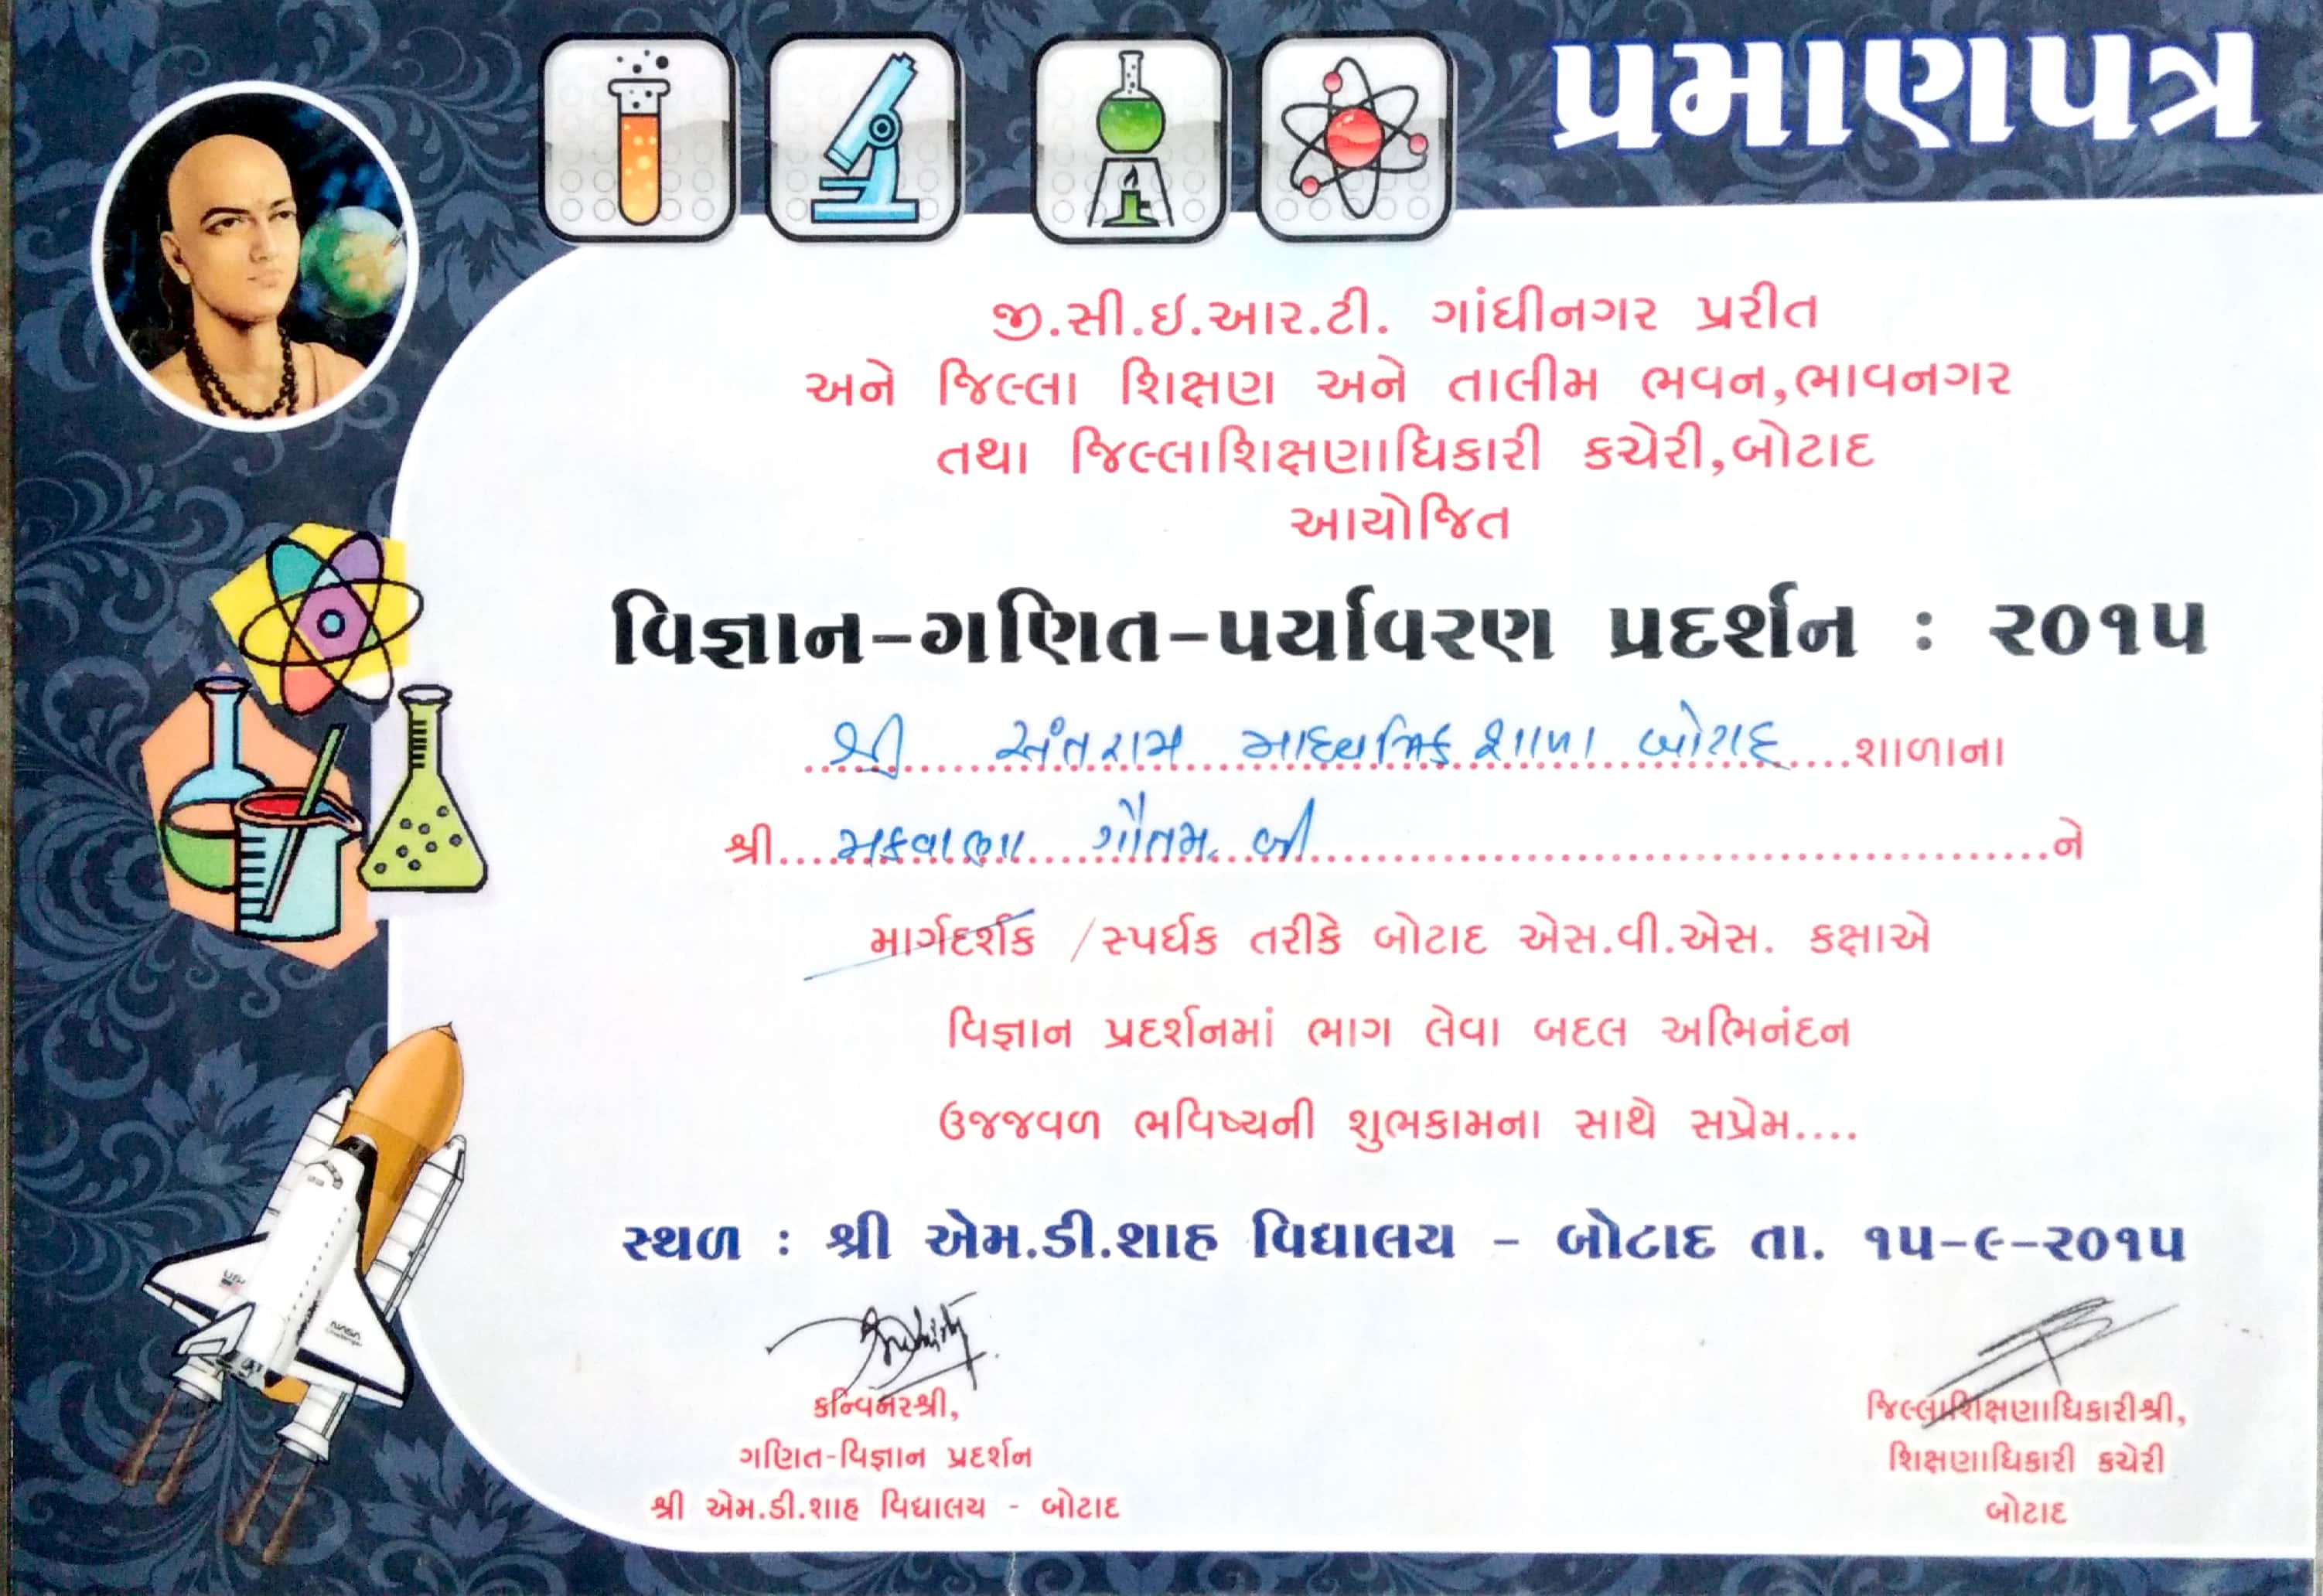 પ્રમાણપત્ર
જી.સી.ઇ.આર.ટી. ગાંધીનગર પ્રરીત
અને જિલ્લા શિક્ષણ અને તાલીમ ભવન,ભાવનગર
તથા જિલ્લાશિક્ષણાધિકારી કચેરી,બોટાદ
આયોજિત
વિજ્ઞાન-ગણિત-પર્યાવરણ પ્રદર્શન : ૨૦૧૫
શ્રી સંતરામ માધ્યમિક શાળા બોટાદ શાળાના
શ્રી મકવાણા ગૌતમ. બી ને
માર્ગદર્શક /સ્પર્ધક તરીકે બોટાદ એસ.વી.એસ. કક્ષાએ
વિજ્ઞાન પ્રદર્શનમાં ભાગ લેવા બદલ અભિનંદન
ઉજજવળ ભવિષ્યની શુભકામના સાથે સપ્રેમ....
સ્થળ : શ્રી એમ.ડી.શાહ વિદ્યાલય - બોટાદ તા. ૧૫-૯-૨૦૧૫
કન્વિનરશ્રી,
ગણિત-વિજ્ઞાન પ્રદર્શન
શ્રી એમ.ડી.શાહ વિદ્યાલય - બોટાદ
જિલ્લાશિક્ષણાધિકારીશ્રી,
શિક્ષણાધિકારી કચેરી
બોટાદ